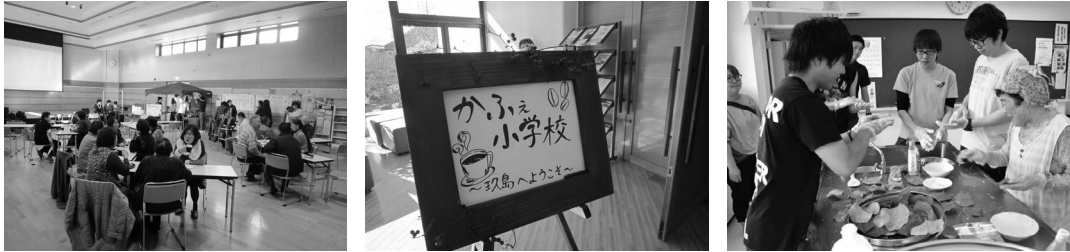 かふぇ
小学校
～玖島へようこそ～